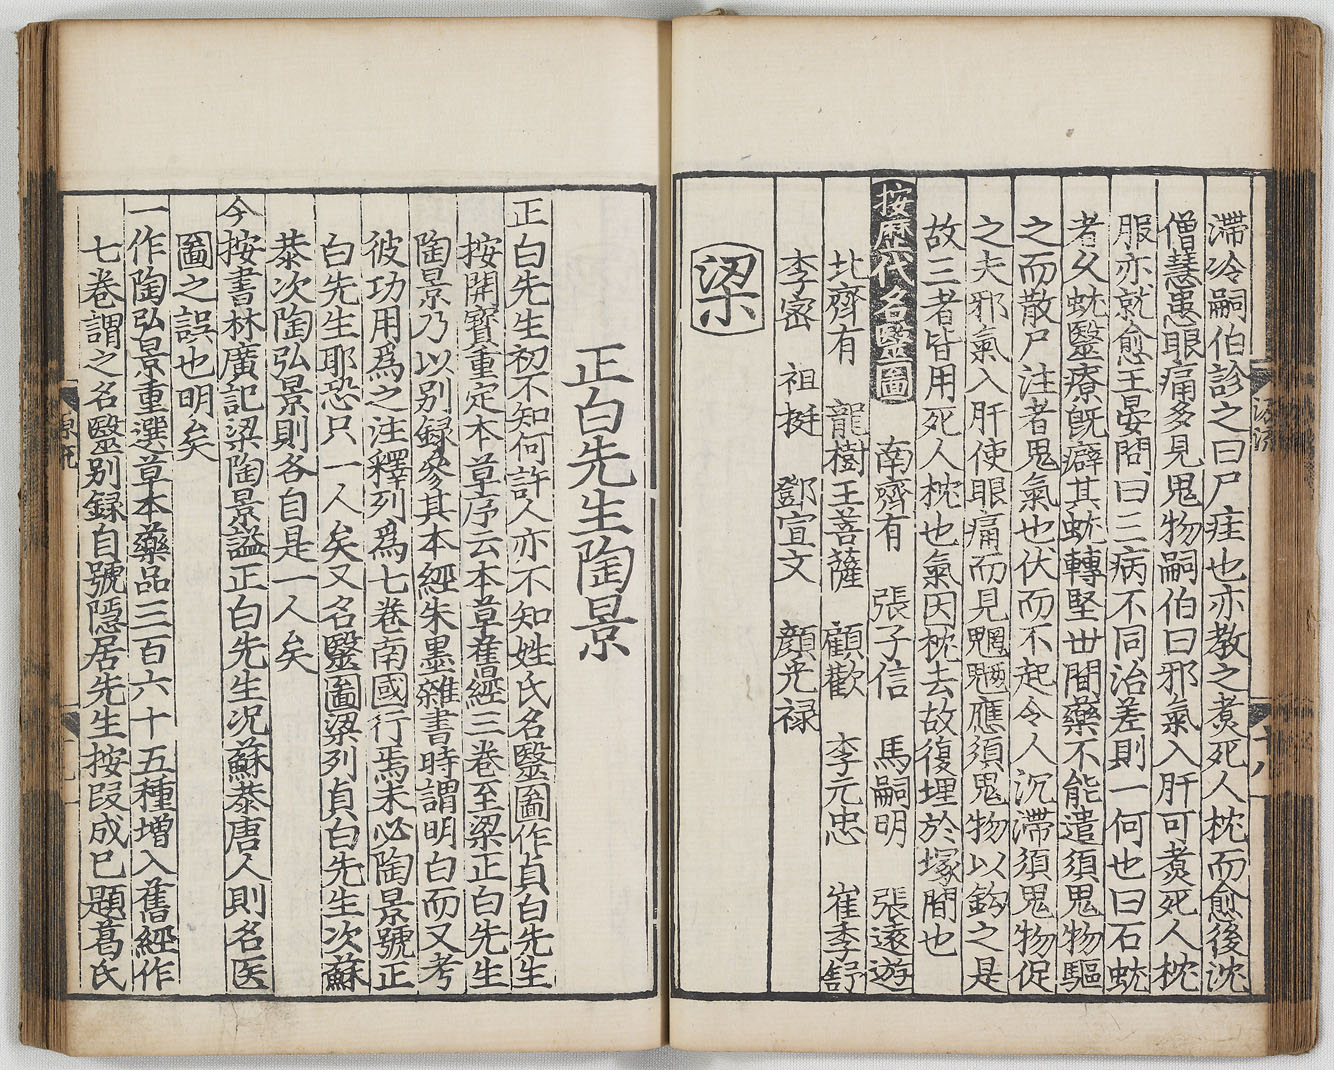 滯冷嗣伯診之曰尸疰也亦教之煑死人枕而愈後沈
僧慧患眼痛多見鬼物嗣伯曰邪氣入肝可煑死人枕
服亦就愈王晏問曰三病不同治差則一何也曰石蚘
者久蚘醫療旣癖其蚘轉堅丗間藥不能遣須鬼物驅
之而散尸注者鬼氣也伏而不起令人沉滯須鬼物促
之夫邪氣入肝使眼痛而見魍魎應須鬼物以鈎之是
故三者皆用死人枕也氣因枕去故復埋於塚間也
按歷代名毉圖 南齊有 張子信 馬嗣明 張遠遊
北齊有 龍樹王菩薩 顧歡 李元忠 崔季舒
李宻 祖挺 鄧宣文 顔光禄
梁
正白先生陶景
正白先生初不知何許人亦不知姓氏名毉圖作貞白先生
按開寳重定本草序云本草舊經三卷至梁正白先生
陶景乃以别録叅其本經朱墨雜書時謂明白而又考
彼功用爲之注釋列爲七卷南國行焉未必陶景號正
白先生耶恐只一人矣又名毉圖梁列貞白先生次蘇
恭次陶弘景則各自是一人矣
今按書林廣記梁陶景謚正白先生况蘇恭唐人則名医
圖之誤也明矣
一作陶弘景重選草本藥品三百六十五種增入舊經作
七卷謂之名毉别録自號隱居先生按叚成已題葛氏
源流
十八